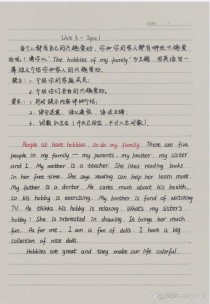 Unit 3 - Topic 1
每个人都有自己的兴趣爱好，你和你的家人都有哪些兴趣爱
好呢！请你以"The hobbies of my family"为主题，用英语写一
篇短文介绍你的家人的兴趣爱好。
提示：1. 介绍你的家人的兴趣爱好；
2. 介绍你自己的兴趣爱好。
要求：1. 可适当
2. 语句通顺，语意连贯，语法正确；
3. 词数
People all have hobbies. So do my family. There are five
people in my family — my parents, my brother, my sister
and I. My mother is a teacher. She likes reading books
in her free time. She says reading can help her learn more.
My father is a doctor. He cares much about his health,
so his hobby is exercising. My brother is fond of watching
TV. He thinks his hobby is relaxing. What's my sister's
hobby? She is interested in drawing. It brings her much
fun. As for me, I am a fan of dolls. I have a big
collection of nice dolls.
Hobbies are great and they make our life colorful.